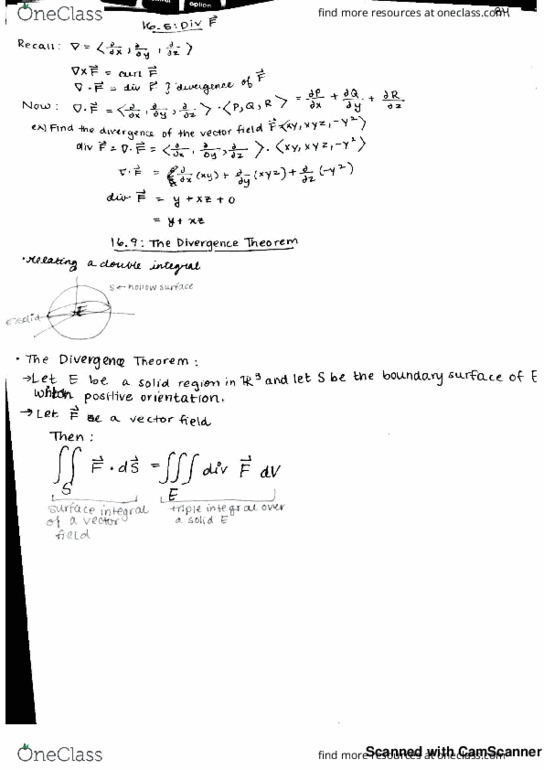 option
OneClass
find more resources at oneclass.com
16.5: Div F⃗
Recall: ∇ = ⟨∂/∂x, ∂/∂y, ∂/∂z⟩
∇×F⃗ = curl F⃗
∇·F⃗ = div F⃗ } divergence of F⃗
Now: ∇·F⃗ = ⟨∂/∂x, ∂/∂y, ∂/∂z⟩ · ⟨P, Q, R⟩ = ∂P/∂x + ∂Q/∂y + ∂R/∂z
ex) Find the divergence of the vector field F⃗⟨xy, xyz, -y²⟩
div F⃗ = ∇·F⃗ = ⟨∂/∂x, ∂/∂y, ∂/∂z⟩ · ⟨xy, xyz, -y²⟩
∇·F⃗ = ∂/∂x(xy) + ∂/∂y(xyz) + ∂/∂z(-y²)
div F⃗ = y + xz + 0
= y + xz
16.9: The Divergence Theorem
·relating a double integral
S ← hollow surface
E
E solid
· The Divergence Theorem:
→Let E be a solid region in ℝ³ and let S be the boundary surface of E
positive orientation.
→ Let F⃗ be a vector field
Then:
∬_S F⃗ · dS⃗ = ∭_E div F⃗ dV
surface integral of a vector field
triple integral over a solid E
OneClass
find more resources at oneclass.com
Scanned with CamScanner